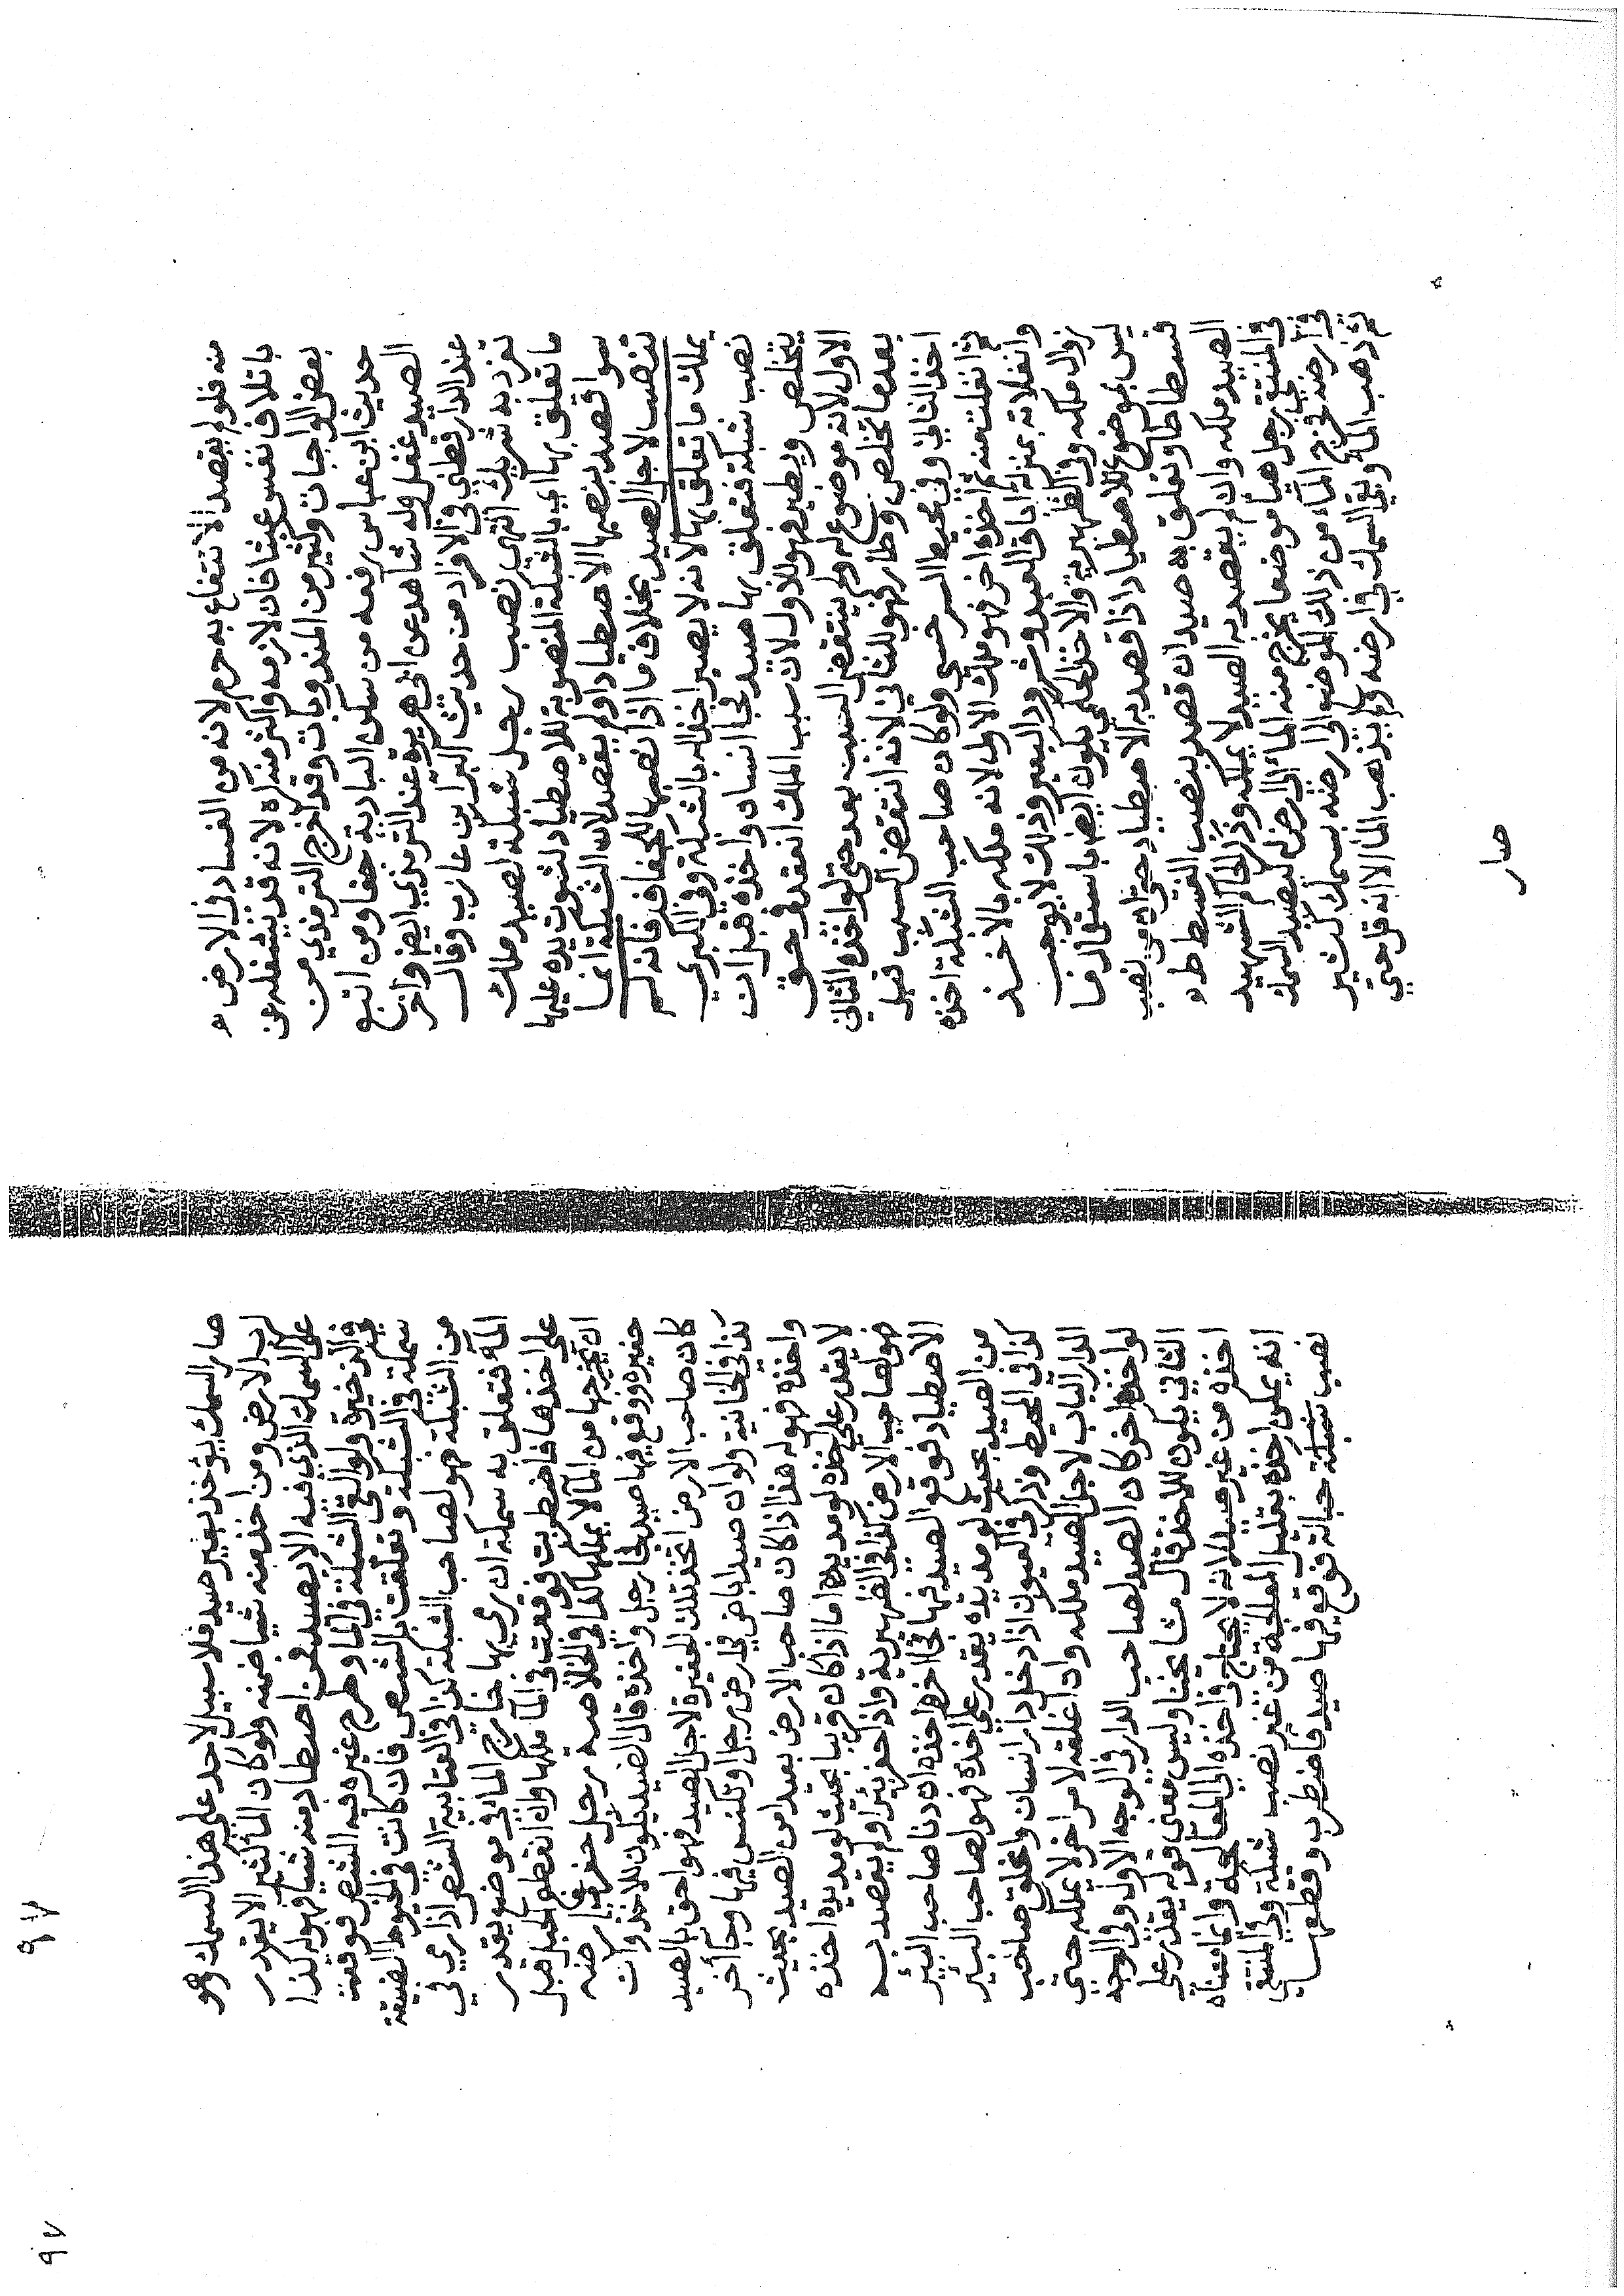 منه فلو لم يقصد الانتفاع به حرم لانه من الفساد في الارض
باتلاف نفس عبثا فان لازمه واكثر منه كره لانه قد يشغله عن
بعض الواجبات وكثير من المندوبات وقد اخرج الترمذي من
حديث ابن عباس رفعه من سكن البادية جفا ومن اتبع
الصيد غفل وله شاهد عن ابي هريرة عند الترمذي ايضا واخر
عند الدارقطني في الافراد من حديث البراء بن عازب وقال
تفرد به شريك انتهى نصب رجل شبكة لصيد ملك
ما تعلق بها اي بالشبكة المنصوبة للاصطياد لثبوت يده عليها
سوا قصد بنصبها الاصطياد او لم يقصد لان الشبكة انما
تنصب لاجل الصيد بخلاف ما اذا نصبها للجفاف فانه لم
يملك ما تعلق بها لانه لا يصير اخذا له بالشبكة وفي الكبرى
نصب شبكة فتعلق بها صيد فجا انسان واخذه قبل ان
يتخلص ويطير فهو للاول لان سبب الملك انعقد في حق
الاول لانه موضوع له ولم ينتقض السبب بعد حتى لو اخذه الثاني
بعد ما تخلص وطار فهو للثاني لانه انتقض السبب قبل
اخذ الثاني وفي محيط السرخسي ولو كان صاحب الشبكة اخذه
ثم انفلت منه ثم اخذه اخر فهو ملك الاول لانه ملكه بالاخذ
وانفلاته بمنزلة اباق العبد وشرود البعير وذلك لا يوجب
زوال ملكه وفي الظهيرية والاخذ الحكمي يكون ايضا باستعمال ما
ليس بموضوع للاصطياد اذا قصد به الاصطياد حتى ان من نصب
فسطاطا وتعلق به صيد ان قصد بنصب الفسطاط
الصيد ملكه وان لم يقصد به الصيد لا يملكه وذكر الحاكم الشهيد
في المنتقى رجل هيا موضعا يخرج منه الماء الى ارض له ليصيد السمك
في ارضه فخرج الماء من ذلك الموضع الى ارضه بسمك كثير
ثم ذهب الماء وبقي السمك في ارضه ولم يذهب الماء الا انه قل حتى
صار
صار السمك يؤخذ بغير صيد فلا سبيل لاحد على هذا السمك وهو
لرب الارض ومن اخذ منه شيئا ضمنه ولو كان الماء كثيرا لا يقدر
على السمك الذي فيه الا بصيد فمن اصطاد منه شيئا فهو له كذا
في الذخيرة ولو القى الشبكة في الماء وطرح غيره فيه الشص فوقعت
سمكة في الشبكة وتعلقت بالشص فان كانت في الخيوط الضيقة
من الشبكة فهو لصاحب الشبكة كذا في العتابية الشص اذا رمي في
الماء فتعلق به سمكة ان رمي بها خارج الماء في موضع يقدر
على اخذها فاضطربت فوقعت في الماء ملكها وان انقطع الحبل قبل
ان يخرجها من الماء لا يملكها كذا في الخلاصة رجل حفر في ارضه
حفيرة ووقع فيها صيد فجا رجل واخذه قال الصيد يكون للاخذ وان
كان صاحب الارض اتخذ تلك الحفيرة لاجل الصيد فهو احق بالصيد
كذا في الخانية ولو ان صيدا باض في ارض رجل او تكنس فيها وجا اخر
واخذه فهو له هذا اذا كان صاحب الارض بعيدا من الصيد بحيث
لا يقدر على اخذه لو مد يده اما اذا كان قريبا بحيث لو مد يده اخذه
فهو لصاحب الارض كذا في الظهيرية واذا حفر بئرا ولم يقصد به
الاصطياد فوقع الصيد فيها فجا اخر واخذه ان دنا صاحب البئر
من الصيد بحيث لو مد يده يقدر على اخذه فهو لصاحب البئر
كذا في المحيط وذكر في العيون اذا دخل دار انسان واغلق صاحب
الدار الباب لاجل الصيد ملكه وان اغلقه لامر اخر لا يملكه حتى
لو اخذه اخر كان الصيد لصاحب الدار في الوجه الاول وفي الوجه
الثاني يكون للاخذ قال مشايخنا وليس معنى قوله يقدر على
اخذه من غير صيد لانه لا يحتاج في اخذه الى المعالجة وانما معناه
انه يمكن اخذه بقليل المعالجة من غير نصب شبكة وفي المنتقى
نصب شبكة حبالة فوقع فيها صيد فاضطرب وقطعها
٩٧
٩٧